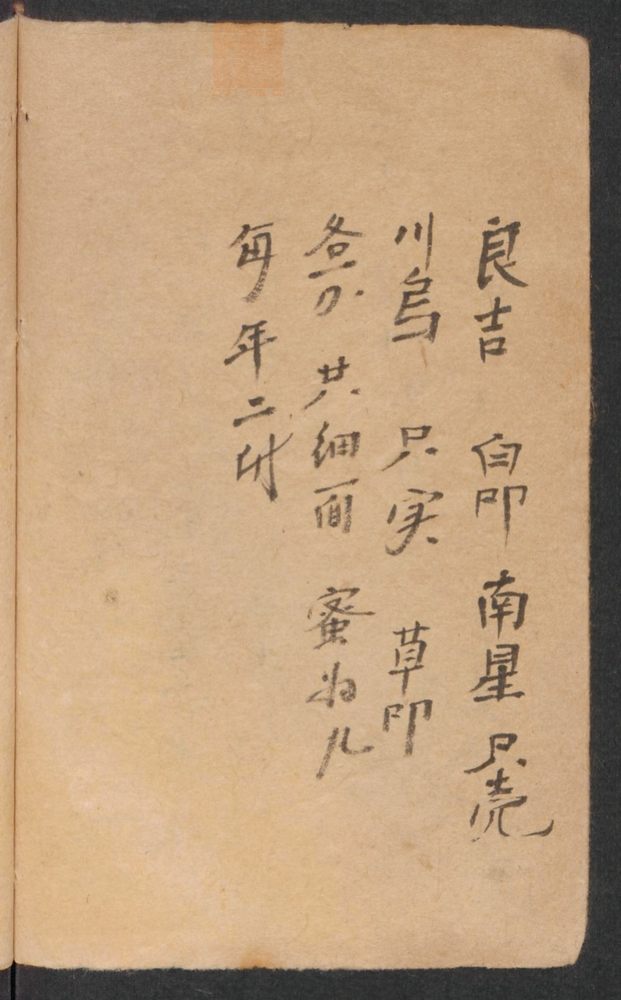 良吉 白叩 南星 只壳
川乌 只实 草叩
共细面 蜜为儿
每年二付